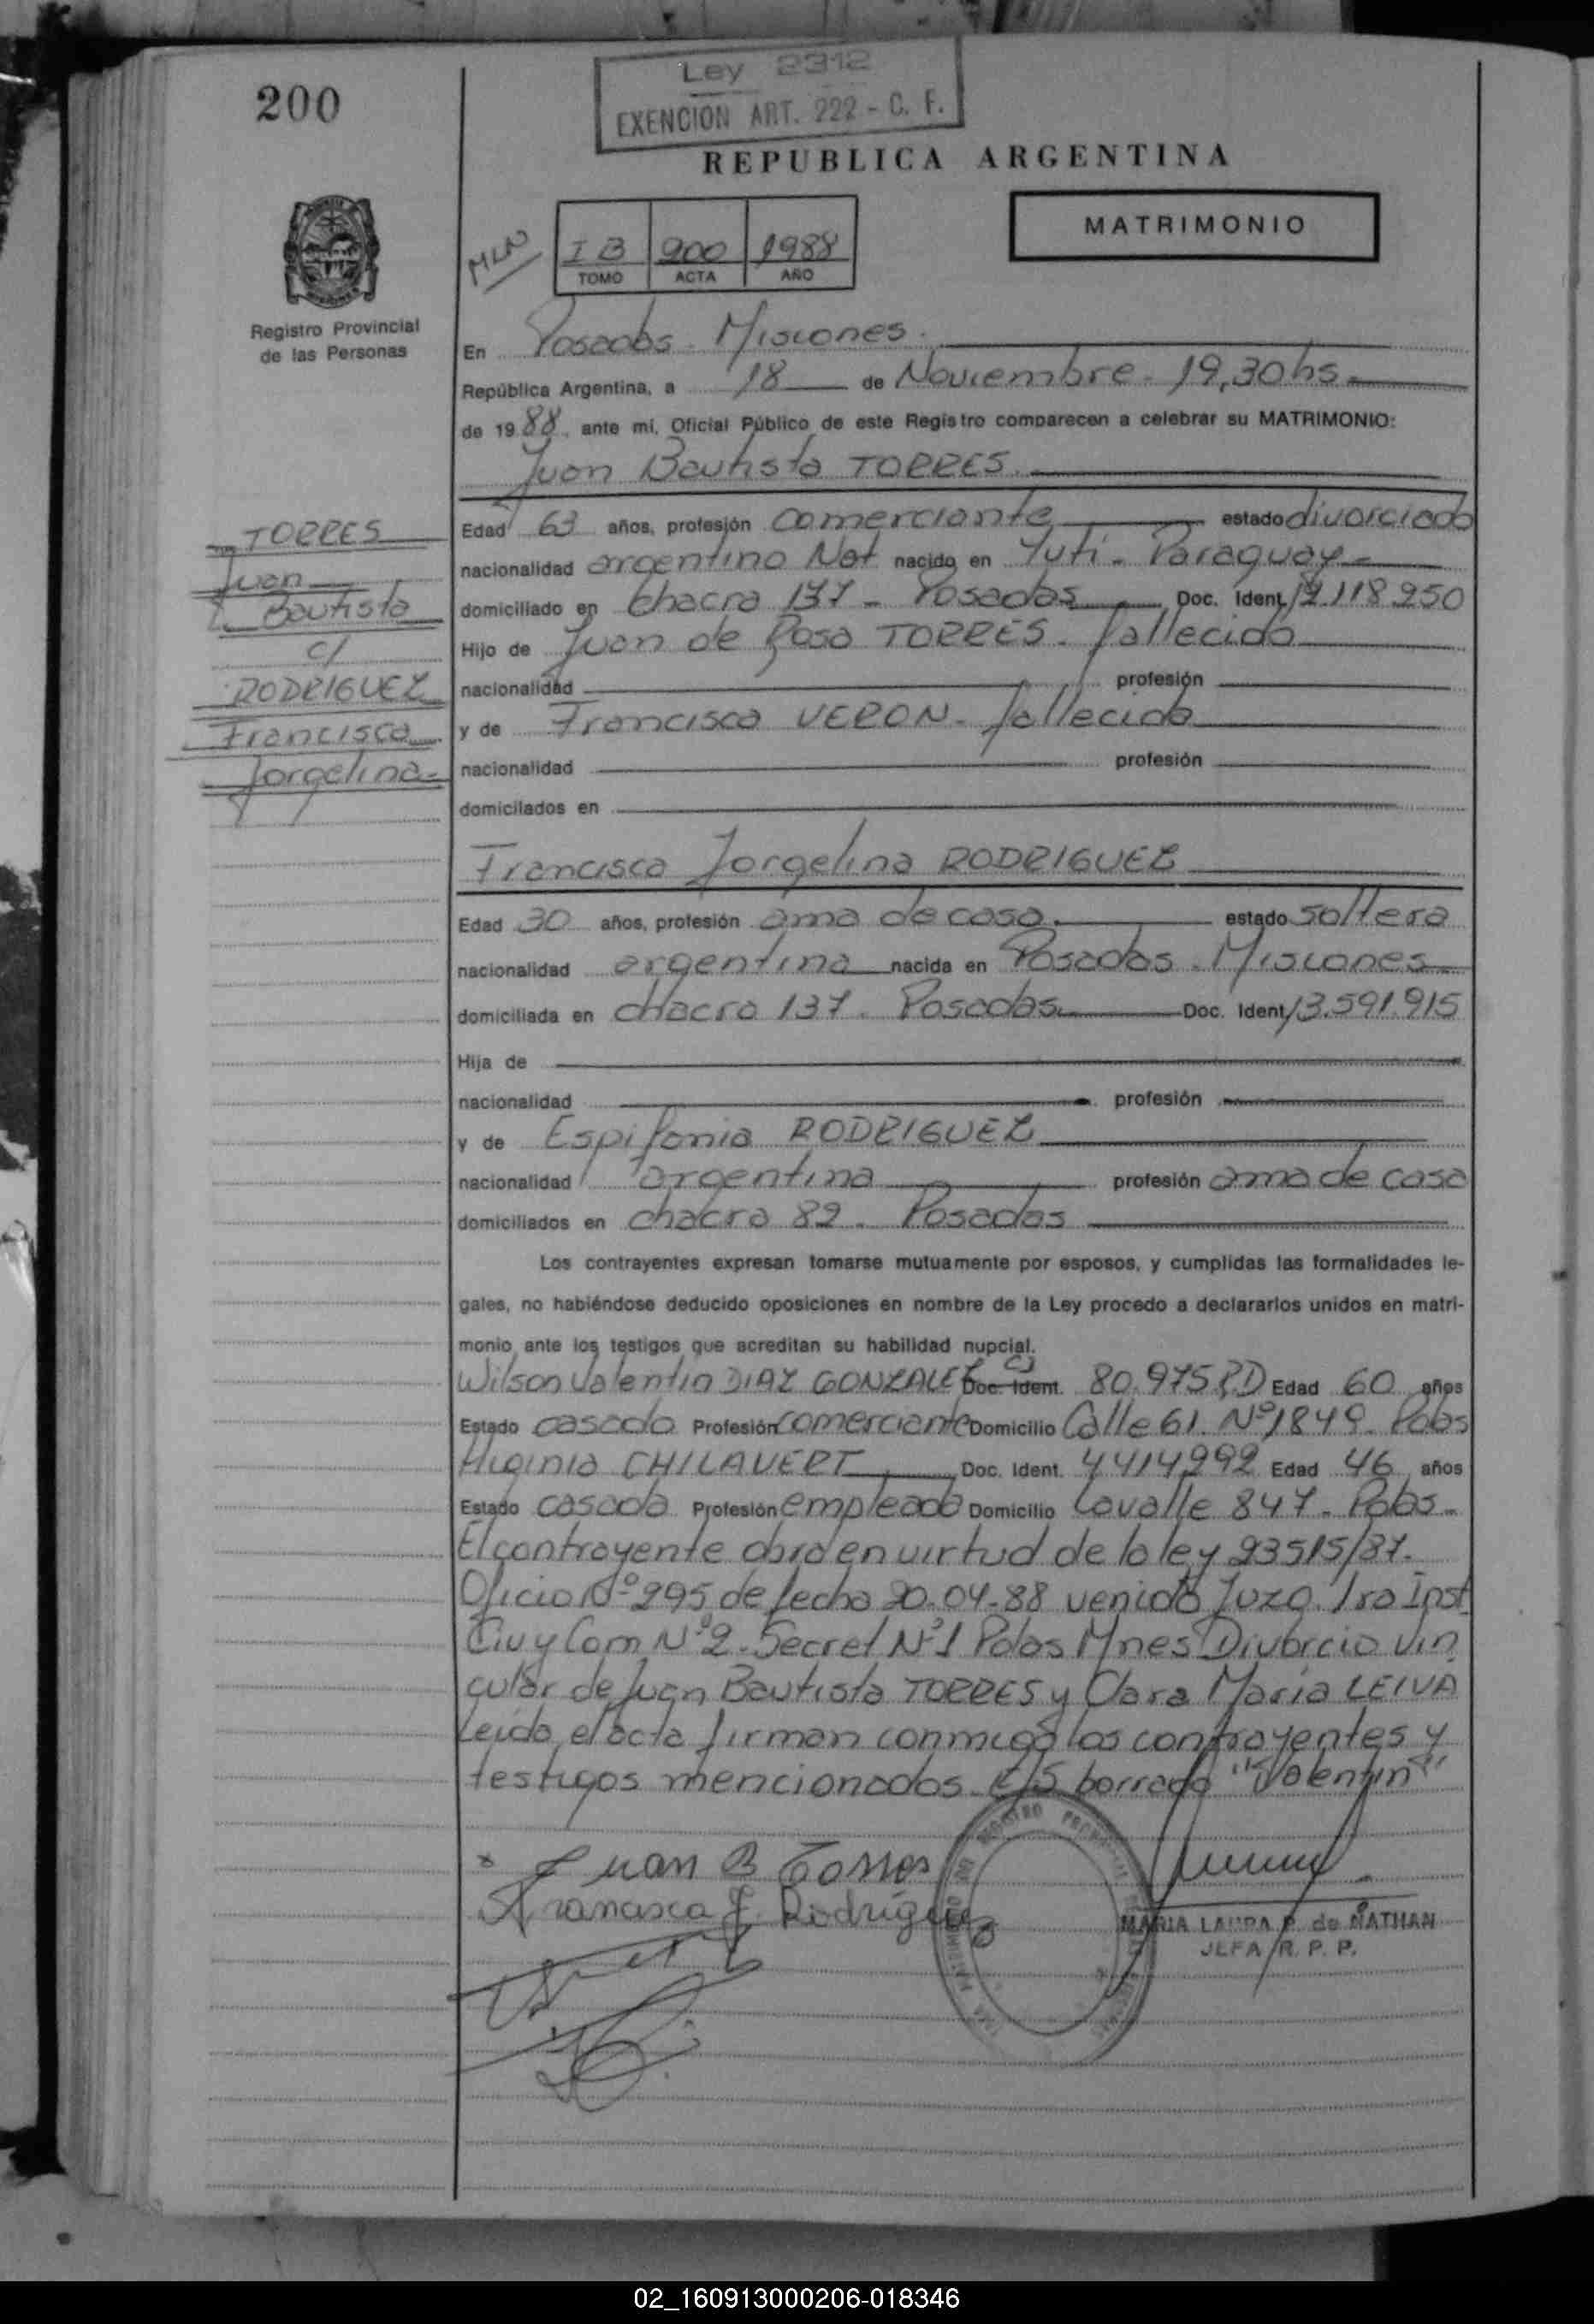 200
Ley 2312
EXENCION ART. 222 - C. F.
REPUBLICA ARGENTINA
MATRIMONIO
MLN
I B 200 1988
TOMO ACTA AÑO
Registro Provincial
de las Personas
En Posadas - Misiones.
República Argentina, a 18 de Noviembre - 19,30 hs.
de 1988, ante mi, Oficial Público de este Registro comparecen a celebrar su MATRIMONIO:
Juan Bautista TORRES.
TORRES
Juan
Bautista
c/
RODRIGUEZ
Francisca
Jorgelina-
Edad 63 años, profesión comerciante estado divorciado
nacionalidad argentino Nat nacido en Yuti - Paraguay-
domiciliado en chacra 137 - Posadas Doc. Ident. 118250
Hijo de Juan de Rosa TORRES - fallecido
nacionalidad profesión
y de Francisca VERON - fallecida
nacionalidad profesión
domicilados en
Francisca Jorgelina RODRIGUEZ
Edad 30 años, profesión ama de casa. estado soltera
nacionalidad argentina nacida en Posadas - Misiones
domiciliada en chacra 137 - Posadas Doc. Ident. 13.591.915
Hija de
nacionalidad profesión
y de Espifania RODRIGUEZ
nacionalidad argentina profesión ama de casa
domiciliados en chacra 82 - Posadas
Los contrayentes expresan tomarse mutuamente por esposos, y cumplidas las formalidades le-
gales, no habiéndose deducido oposiciones en nombre de la Ley procedo a declararlos unidos en matri-
monio ante los testigos que acreditan su habilidad nupcial.
Wilson Valentin DIAZ GONZALEZ CJ Doc. Ident. 80.975 Edad 60 años
Estado casado Profesión comerciante Domicilio Calle 61 Nº 1849 - Pdas
Higinia CHILAVERT Doc. Ident. 4414992 Edad 46 años
Estado casada Profesión empleada Domicilio Lavalle 847 - Pdas-
El contrayente obra en virtud de la ley 23515/87.
Oficio Nº 295 de fecha 20-04-88 venido Juzg. 1ra Inst
Civ y Com Nº 2 - Secret Nº 1 Pdas Mnes Divorcio Vin
cular de Juan Bautista TORRES y Clara Maria LEIVA
Leida el acta firman conmigo los contrayentes y
testigos mencionados E/S borrado "Valentin"
Juan B Torres
Francisca J. Rodriguez
MARIA LAURA P. de NATHAN
JEFA R. P. P.
02_160913000206-018346